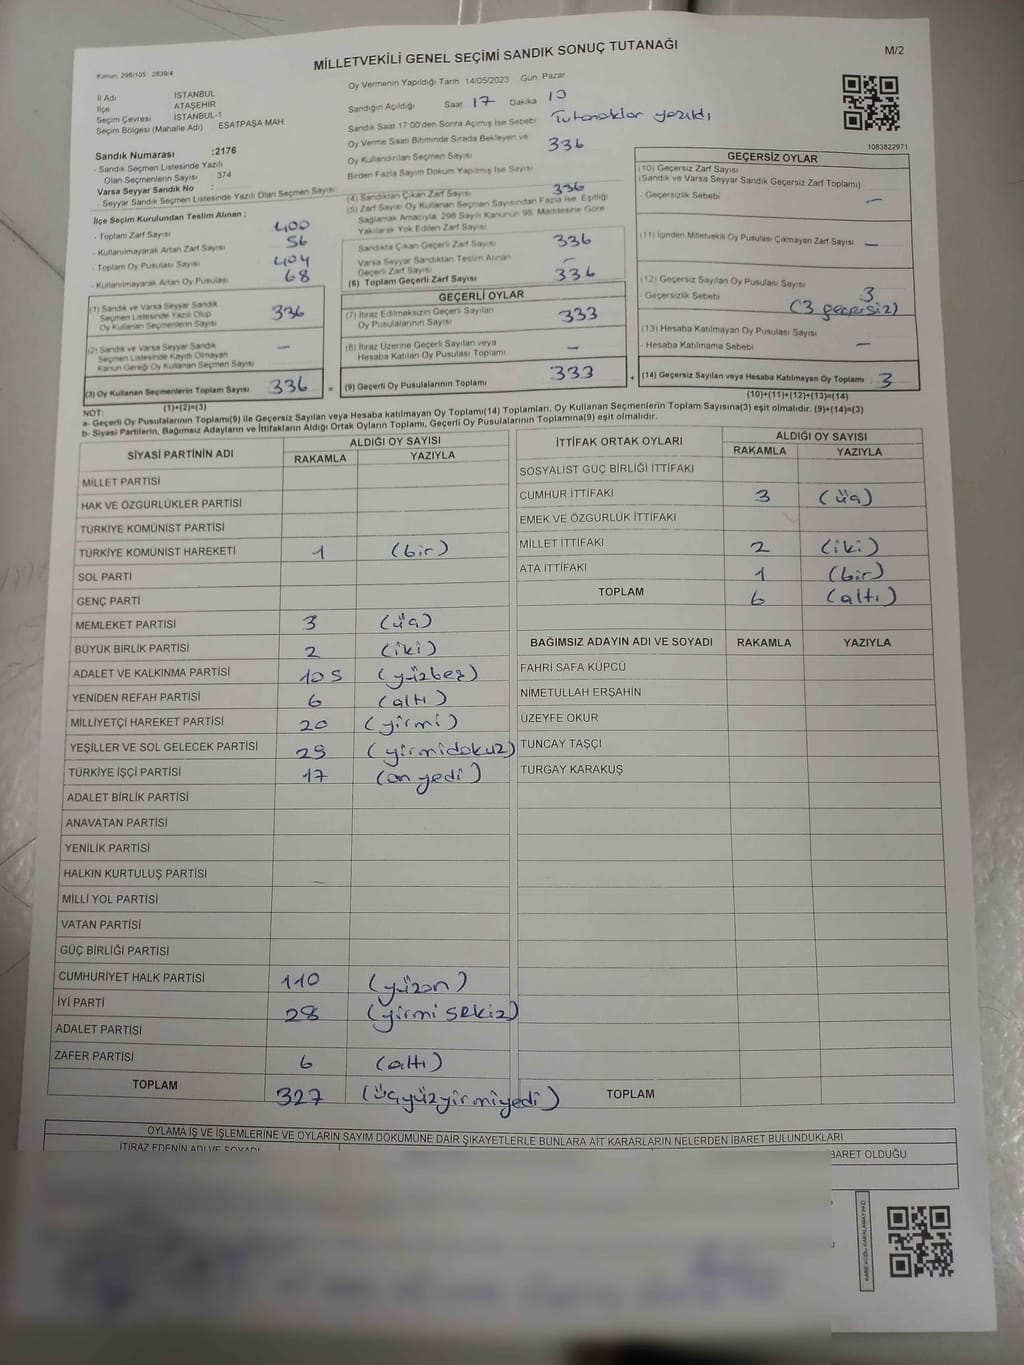 MİLLETVEKİLİ GENEL SEÇİMİ SANDIK SONUÇ TUTANAĞI
M/2
Kanun: 298/105 , 2839/4
Oy Vermenin Yapıldığı Tarih 14/05/2023 Gün: Pazar
İl Adı İSTANBUL
İlçe ATAŞEHİR
Seçim Çevresi İSTANBUL-1
Seçim Bölgesi (Mahalle Adı) ESATPAŞA MAH
Sandık Numarası :2176
- Sandık Seçmen Listesinde Yazılı
Olan Seçmenlerin Sayısı 374
Varsa Seyyar Sandık No :
- Seyyar Sandık Seçmen Listesinde Yazılı Olan Seçmen Sayısı
Sandığın Açıldığı Saat 17 Dakika 10
Sandık Saat 17:00'den Sonra Açımış İse Sebebi Tutanaklar yazıldı
Oy Verme Saati Bitiminde Sırada Bekleyen ve
Oy Kullandırılan Seçmen Sayısı 336
Birden Fazla Sayım Döküm Yapılmış İse Sayısı
1083822971
İlçe Seçim Kurulundan Teslim Alınan ;
- Toplam Zarf Sayısı 400
- Kullanılmayarak Artan Zarf Sayısı 56
- Toplam Oy Pusulası Sayısı 404
- Kullanılmayarak Artan Oy Pusulası 68
(1) Sandık ve Varsa Seyyar Sandık
Seçmen Listesinde Yazılı Olup
Oy Kullanan Seçmenlerin Sayısı 336
(2) Sandık ve Varsa Seyyar Sandık
Seçmen Listesinde Kayıtlı Olmayan
Kanun Gereği Oy Kullanan Seçmen Sayısı —
(3) Oy Kullanan Seçmenlerin Toplam Sayısı 336
(1)+(2)=(3)
(4) Sandıktan Çıkan Zarf Sayısı 336
(5) Zarf Sayısı Oy Kullanan Seçmen Sayısından Fazla İse, Eşitliği
Sağlamak Amacıyla, 298 Sayılı Kanunun 98. Maddesine Göre
Yakılarak Yok Edilen Zarf Sayısı
Sandıkta Çıkan Geçerli Zarf Sayısı 336
Varsa Seyyar Sandıktan Teslim Alınan
Geçerli Zarf Sayısı –
(6) Toplam Geçerli Zarf Sayısı 336
GEÇERLİ OYLAR
(7) İtiraz Edilmeksizin Geçerli Sayılan
Oy Pusulalarının Sayısı 333
(8) İtiraz Üzerine Geçerli Sayılan veya
Hesaba Katılan Oy Pusulası Toplamı —
= (9) Geçerli Oy Pusulalarının Toplamı 333
GEÇERSİZ OYLAR
(10) Geçersiz Zarf Sayısı
(Sandık ve Varsa Seyyar Sandık Geçersiz Zarf Toplamı)
- Geçersizlik Sebebi —
(11) İçinden Milletvekili Oy Pusulası Çıkmayan Zarf Sayısı —
(12) Geçersiz Sayılan Oy Pusulası Sayısı 3
- Geçersizlik Sebebi (3 geçersiz)
(13) Hesaba Katılmayan Oy Pusulası Sayısı
- Hesaba Katılmama Sebebi —
+ (14) Geçersiz Sayılan veya Hesaba Katılmayan Oy Toplamı 3
(10)+(11)+(12)+(13)=(14)
NOT:
a- Geçerli Oy Pusulalarının Toplamı(9) ile Geçersiz Sayılan veya Hesaba katılmayan Oy Toplamı(14) Toplamları, Oy Kullanan Seçmenlerin Toplam Sayısına(3) eşit olmalıdır. (9)+(14)=(3)
b- Siyasi Partilerin, Bağımsız Adayların ve İttifakların Aldığı Ortak Oyların Toplamı, Geçerli Oy Pusulalarının Toplamına(9) eşit olmalıdır.
SİYASİ PARTİNİN ADI ALDIĞI OY SAYISI
RAKAMLA YAZIYLA
MİLLET PARTİSİ
HAK VE ÖZGÜRLÜKLER PARTİSİ
TÜRKİYE KOMÜNİST PARTİSİ
TÜRKİYE KOMÜNİST HAREKETİ 1 (bir)
SOL PARTİ
GENÇ PARTİ
MEMLEKET PARTİSİ 3 (üç)
BÜYÜK BİRLİK PARTİSİ 2 (iki)
ADALET VE KALKINMA PARTİSİ 105 (yüzbeş)
YENİDEN REFAH PARTİSİ 6 (altı)
MİLLİYETÇİ HAREKET PARTİSİ 20 (yirmi)
YEŞİLLER VE SOL GELECEK PARTİSİ 29 (yirmidokuz)
TÜRKİYE İŞÇİ PARTİSİ 17 (on yedi)
ADALET BİRLİK PARTİSİ
ANAVATAN PARTİSİ
YENİLİK PARTİSİ
HALKIN KURTULUŞ PARTİSİ
MİLLİ YOL PARTİSİ
VATAN PARTİSİ
GÜÇ BİRLİĞİ PARTİSİ
CUMHURİYET HALK PARTİSİ 110 (yüzon)
İYİ PARTİ 28 (yirmi sekiz)
ADALET PARTİSİ
ZAFER PARTİSİ 6 (altı)
TOPLAM 327 (üçyüzyirmiyedi)
İTTİFAK ORTAK OYLARI ALDIĞI OY SAYISI
RAKAMLA YAZIYLA
SOSYALİST GÜÇ BİRLİĞİ İTTİFAKI
CUMHUR İTTİFAKI 3 (üç)
EMEK VE ÖZGÜRLÜK İTTİFAKI
MİLLET İTTİFAKI 2 (iki)
ATA İTTİFAKI 1 (bir)
TOPLAM 6 (altı)
BAĞIMSIZ ADAYIN ADI VE SOYADI RAKAMLA YAZIYLA
FAHRİ SAFA KÜPCÜ
NİMETULLAH ERŞAHİN
ÜZEYFE OKUR
TUNCAY TAŞÇI
TURGAY KARAKUŞ
TOPLAM
OYLAMA İŞ VE İŞLEMLERİNE VE OYLARIN SAYIM DÖKÜMÜNE DAİR ŞİKAYETLERLE BUNLARA AİT KARARLARIN NELERDEN İBARET BULUNDUKLARI
İTİRAZ EDENİN ADI VE SOYADI
BARET OLDUĞU
KAREKODU KARALAMAYINIZ